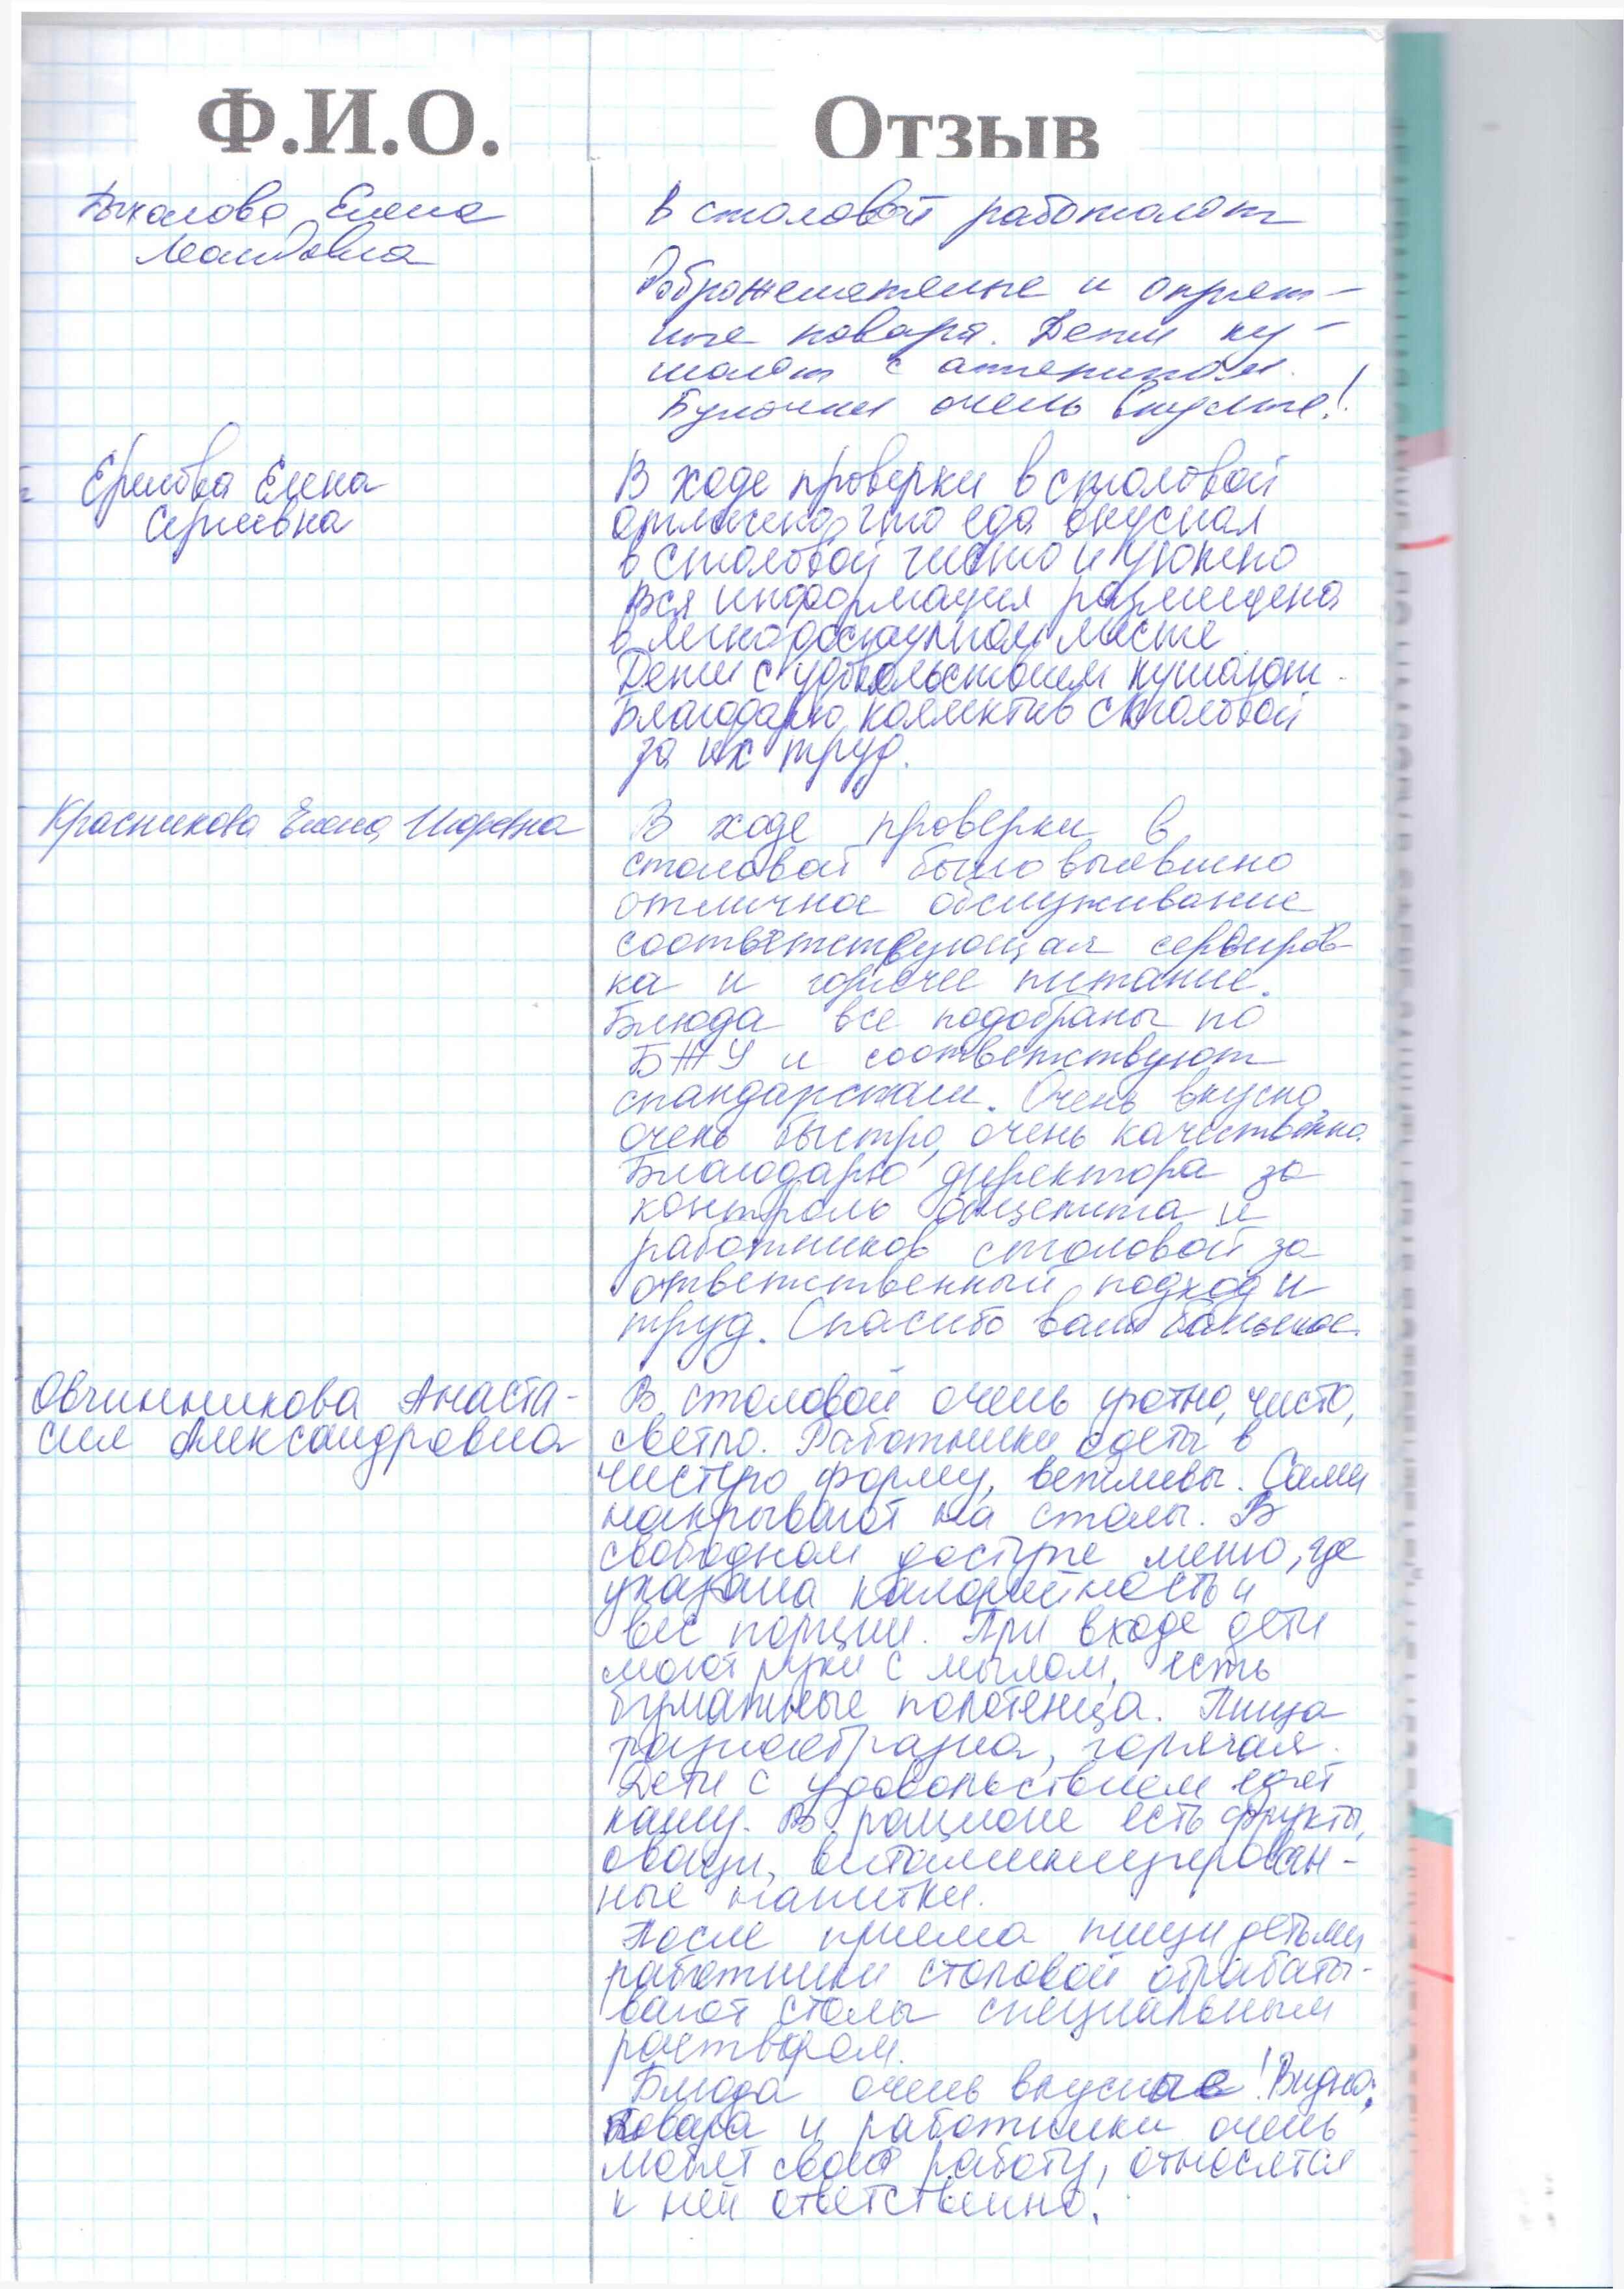 Ф.И.О.
Отзыв
Елена
В столовой работают
Доброжелательные и опрят-
ные повара. Дети ку-
шают с аппетитом.
Булочки очень вкусные!
Елена
Сергеевна
В ходе проверки в столовой
отмечено, что еда вкусная
в столовой чисто и уютно
Вся информация размещена
в легкодоступном месте
Дети с удовольствием кушают.
Благодарю коллектив столовой
за их труд.
Красникова Елена Игоревна
В ходе проверки в
столовой было выявлено
отличное обслуживание
соответствующая сервиров-
ка и горячее питание.
Блюда все подобраны по
БЖУ и соответствуют
стандартам. Очень вкусно,
очень быстро, очень качественно.
Благодарю директора за
контроль общепита и
работников столовой за
ответственный подход и
труд. Спасибо вам большое.
Овчинникова Анаста-
сия Александровна
В столовой очень уютно, чисто,
светло. Работники одеты в
чистую форму, вежливы. Сами
накрывают на столы. В
свободном доступе меню, где
указана калорийность и
вес порции. При входе дети
моют руки с мылом, есть
бумажные полотенца. Пища
разнообразна, горячая.
Дети с удовольствием едят
кашу. В рационе есть фрукты,
овощи, витаминизирован-
ные напитки.
После приема пищи детьми
работники столовой обрабаты-
вают столы специальным
раствором.
Блюда очень вкусные! Видно,
повара и работники очень
любят свою работу, относятся
к ней ответственно.